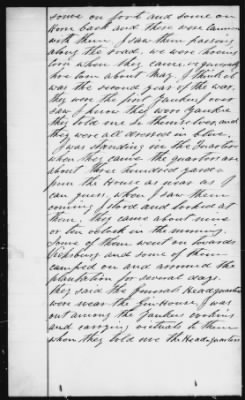 some on foot and some on
horse back and there were cannon
with them. I saw them passing
along the road, we were hoeing
corn when they came, we generally
hoe corn about May. I think it
was the second year of the war.
they were the first Yankees I ever
saw, I knew they were Yankees
they told me so themselves, and
they were all dressed in blue.
I was standing in the quarters
when they came the quarters are
about three hundred yards
from the House as near as I
can guess, when I saw them
coming I stood and looked at
them, they came about nine
or ten oclock in the morning.
Some of them went on towards
Vicksburg and some of them
camped on and around the
plantation for several days.
they said the Generals Headquarters
were near the Gin House, I was
out among the Yankees cooking
and carrying victuals to them
when they told me the Headquarters